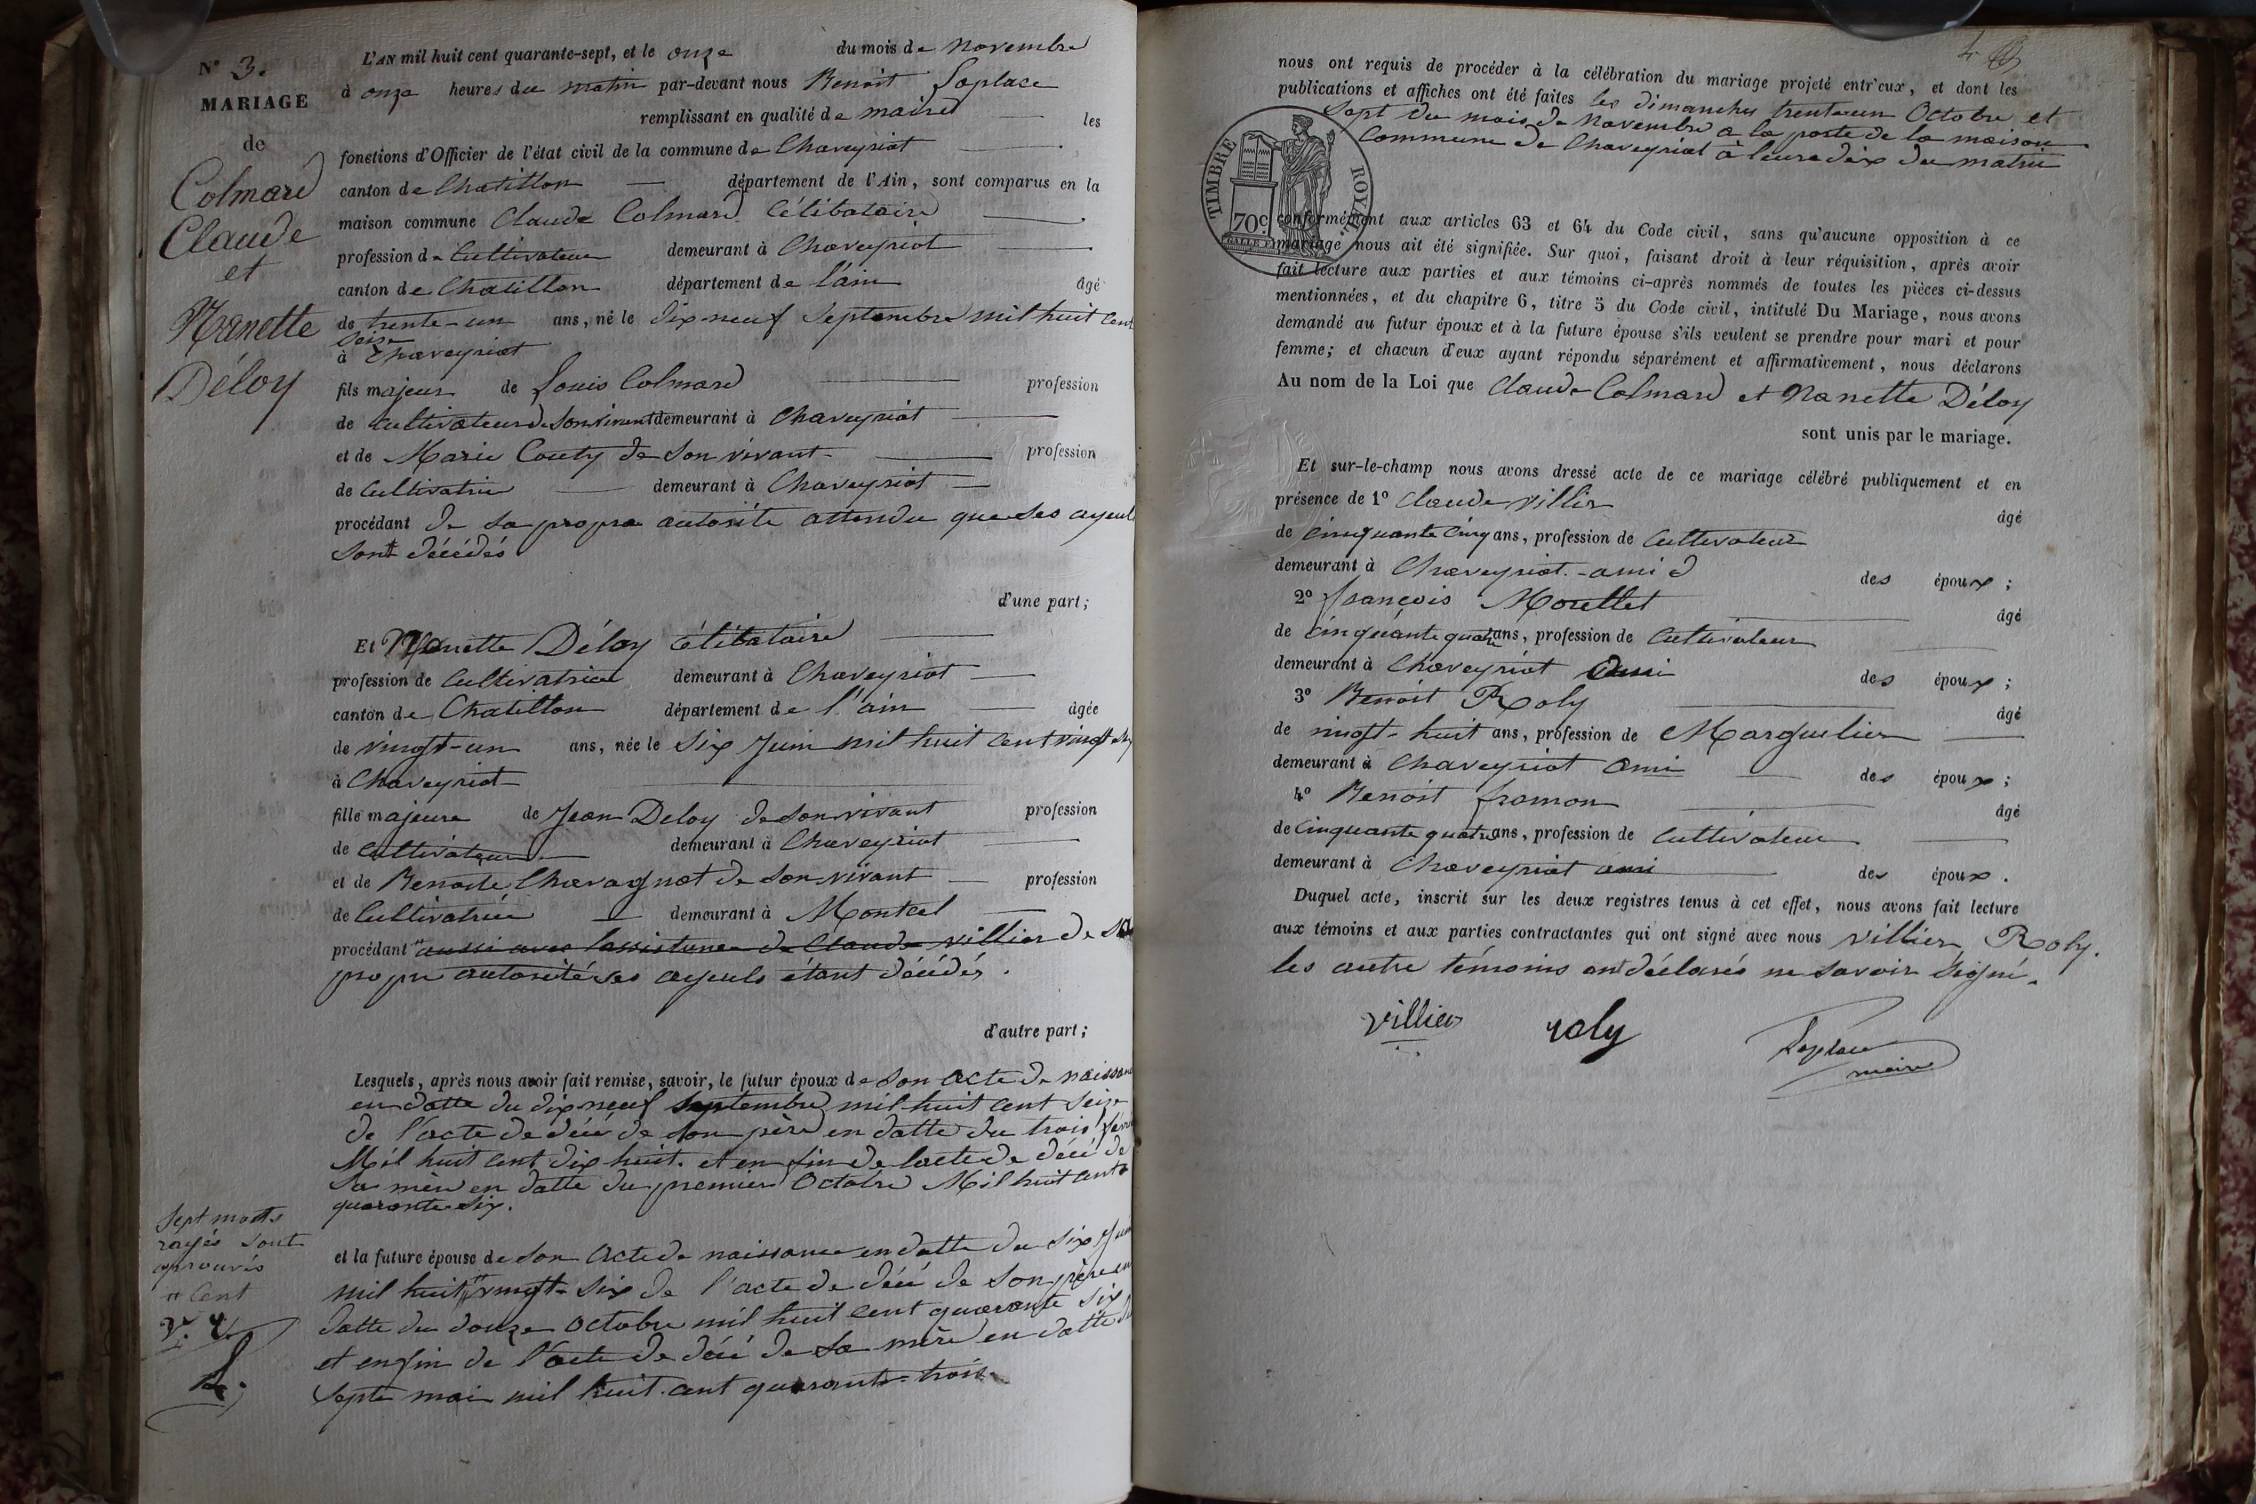 N° 3.
MARIAGE
de
Colmard
Claude
et
Nanette
Déloy
L'AN mil huit cent quarante-sept, et le onze du mois de novembre
à onze heures du matin par-devant nous Benoit Laplace
remplissant en qualité de maire les
fonctions d'Officier de l'état civil de la commune de Chaveyriat
canton de Chatillon département de l'Ain, sont comparus en la
maison commune Claude Colmard Célibataire
profession de Cultivateur demeurant à Chaveyriat
canton de Chatillon département de l'ain âgé
de trente-un ans, né le dix neuf Septembre mil huit cent
Seize
à Chaveyriat
fils majeur de Louis Colmard profession
de Cultivateur de Son vivant demeurant à Chaveyriat
et de Marie Couty de Son vivant profession
de Cultivatrice demeurant à Chaveyriat
procédant de sa propre autorité attendu que ses ayeuls
sont décédés
d'une part;
Et Nanette Déloy Célibataire
profession de Cultivatrice demeurant à Chaveyriat
canton de Chatillon département de l'ain âgée
de vingt-un ans, née le Six Juin mil huit cent vingt six
à Chaveyriat
fille majeure de Jean Deloy de son vivant profession
de Cultivateur demeurant à Chaveyriat
et de Benoite Chavagnat de Son vivant profession
de Cultivatrice demeurant à Montcel
procédant " aussi avec lassistance de Claude villier de sa
propre autorité ses ayeuls étant décédés.
d'autre part;
Lesquels, après nous avoir fait remise, savoir, le futur époux de son acte de naissance
en datte du dix neuf Septembre mil huit cent Seize
de l'acte de décé de son père en datte du trois
Mil huit cent dix huit. et en fin de lacte de décé de
Sa mere en datte du premier Octobre Mil huit cent
quarante Six.
et la future épouse de son acte de naissance en datte du six Juin
mil huit " vingt-six de l'acte de décé de son père en
datte du douze octobre mil huit cent quarante six
et enfin de l'acte de décé de sa mère en datte du
Septe mai mil huit cent quarante-trois
Sept motts
rayés Sont
aprouvés
" Cent
nous ont requis de procéder à la célébration du mariage projeté entr'eux, et dont les
publications et affiches ont été faites les dimanches trente un Octobre et
Sept du mois de novembre a la porte de la maison
Commune de Chaveyriat à leure dix du matin
TIMBRE ROYAL.
70c
conformément aux articles 63 et 64 du Code civil, sans qu'aucune opposition à ce
mariage nous ait été signifiée. Sur quoi, faisant droit à leur réquisition, après avoir
fait lecture aux parties et aux témoins ci-après nommés de toutes les pièces ci-dessus
mentionnées, et du chapitre 6, titre 5 du Code civil, intitulé Du Mariage, nous avons
demandé au futur époux et à la future épouse s'ils veulent se prendre pour mari et pour
femme; et chacun d'eux ayant répondu séparément et affirmativement, nous déclarons
Au nom de la Loi que Claude Colmard et Nanette Déloy
sont unis par le mariage.
Et sur-le-champ nous avons dressé acte de ce mariage célébré publiquement et en
présence de 1° Claude Villier
âgé
de Cinquante Cinq ans, profession de Cultivateur
demeurant à Chaveyriat. - ami des époux;
2° françois Morellet
âgé
de cinquante quatre ans, profession de Cultivateur
demeurant à Chaveyriat ami des époux;
3° Benoit Roly
âgé
de vingt-huit ans, profession de Marguilier
demeurant à Chaveyriat ami des époux;
4° Benoit fromon
âgé
de Cinquante quatre ans, profession de Cultivateur
demeurant à Chaveyriat ami des époux.
Duquel acte, inscrit sur les deux registres tenus à cet effet, nous avons fait lecture
aux témoins et aux parties contractantes qui ont signé avec nous Villier, Roly.
les autre témoins ont déclarés ne savoir Signé.
Villier roly Laplace
maire